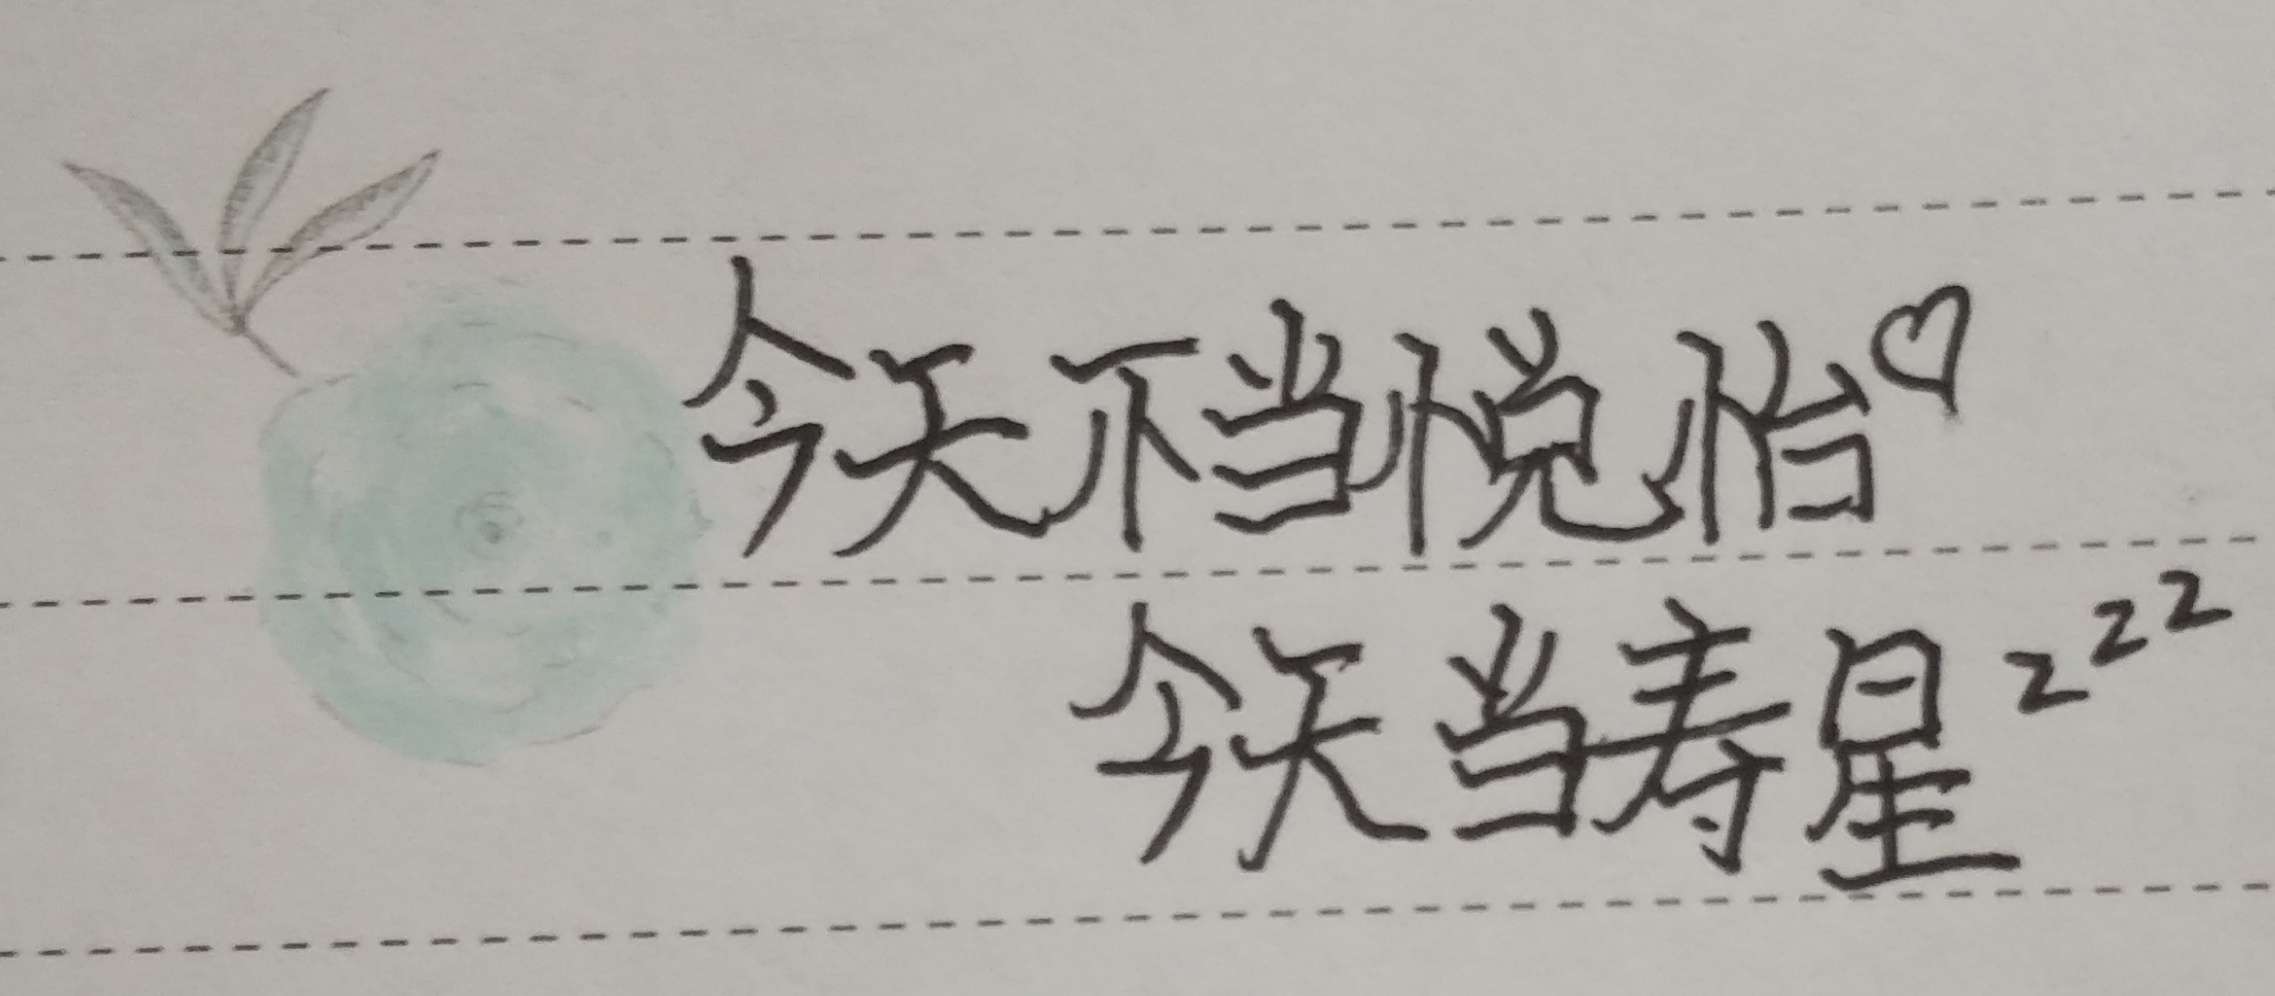 今天不当悦怡♡
今天当寿星zzz